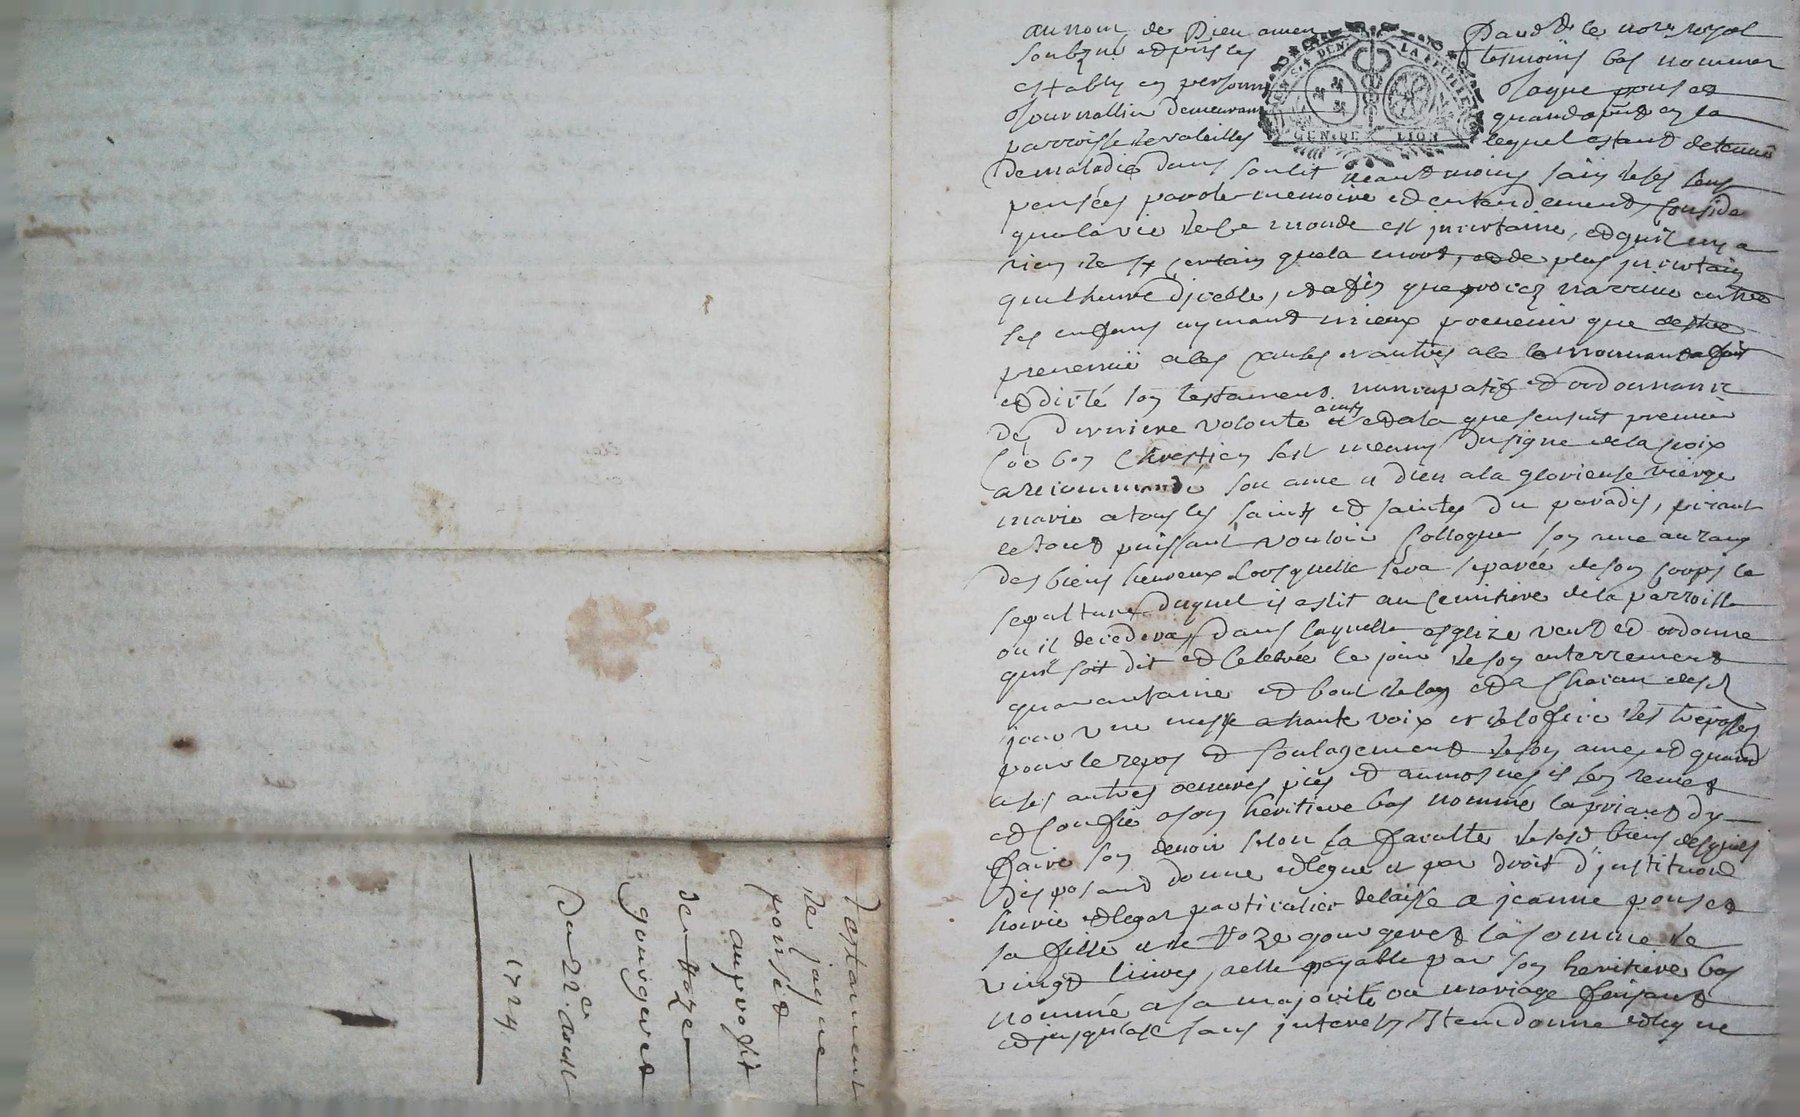 testament
de jaque
ponset
au profit
de roze
gourgeret
du 22e aoust
1724
au nom de Dieu amen Pardt le nore royal
soubzné et puis les tesmoins bas nommer
estably en personne Jaque ponset
Journallier demeurant en la
parroisse de lequel estant detenu
de maladie dans son lit neantmoins sain de ses sens
pensées parole memoire et entendement, conside
que la vie de ce monde est incertaine, et quil ny a
rien de sy certain que la mort, et de plus incertain
que lheure dicelle, et afin que proces narrive entre
ses enfans aymant mieux prevenir que destre
prevenu a ces causes et autres a ce le mouvant a fait
et dicté son testament nuncupatif et ordonnance
de derniere volonté ainsy et a la que sensuit premier
coe bon Chrestien sest meuny du signe de la croix
a recommandé son ame a dieu a la glorieuse vierge
marie a tous les saints et saintes du paradis, priant
le tout puissant vouloir colloquer son ame au rang
des biens heureux Lorsquelle sera separée de son corps la
sepulture duquel il eslit au cemitiere de la parroisse
ou il decedera, dans laquelle esglize veut et ordonne
quil soit dit et celebrée le jour de son enterrement
quarantaine et bout de lan et a chacun desd
jour une messe a haute voix et de lofice des trepasses
pour le repos et soulagement de son ame, et quand
a ses autres oeuvres pies et aumosnes il sen remet
et confie a son heritiere bas nommé la priant dy
faire son devoir selon la faculté de sesd biens desquels
disposant donne et legue et par droit d'institution
hoirie et legat particulier delaisse a jeanne ponset
sa fille et de roze gourgeret la somme de
vingt livres, a elle payable par son heritiere bas
nommé a sa majorité ou mariage faisant
et jusqualc sans interest, Item donne et legue